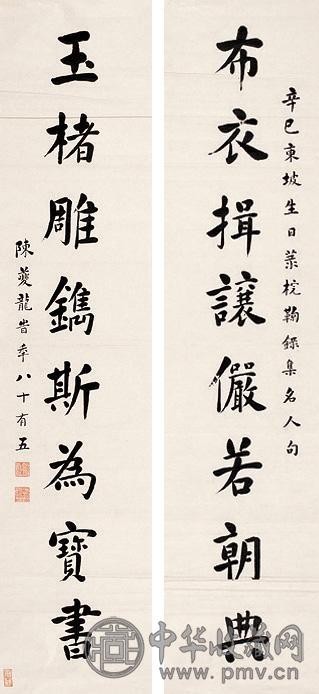 辛巳東坡生日梡鞠錄集名人句
布衣揖讓儼若朝典
玉楮雕鐫斯為寶書
陳夔龍旹年八十有五
中华收藏网
www.pmv.cn